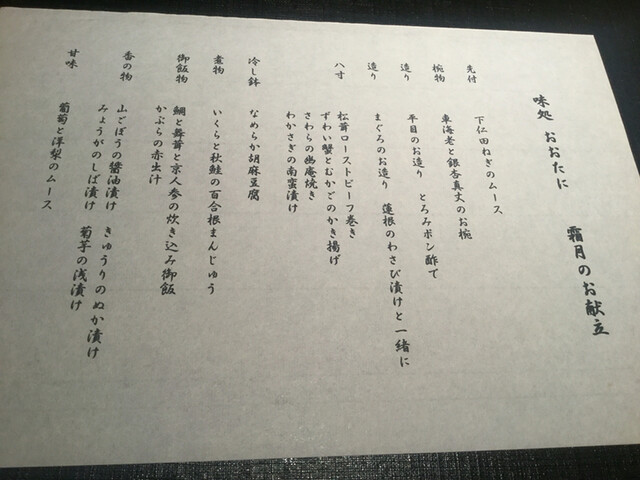 味処 おおたに 霜月のお献立
先付 下仁田ねぎのムース
椀物 車海老と銀杏真丈のお椀
造り 平目のお造り とろみポン酢で
造り まぐろのお造り 蓮根のわさび漬けと一緒に
八寸 松茸ローストビーフ巻き
ずわい蟹とむかごのかき揚げ
さわらの幽庵焼き
わかさぎの南蛮漬け
冷し鉢 なめらか胡麻豆腐
煮物 いくらと秋鮭の百合根まんじゅう
御飯物 鯛と舞茸と京人参の炊き込み御飯
かぶらの赤出汁
香の物 山ごぼうの醤油漬け きゅうりのぬか漬け
みょうがのしば漬け 菊芋の浅漬け
甘味 葡萄と洋梨のムース